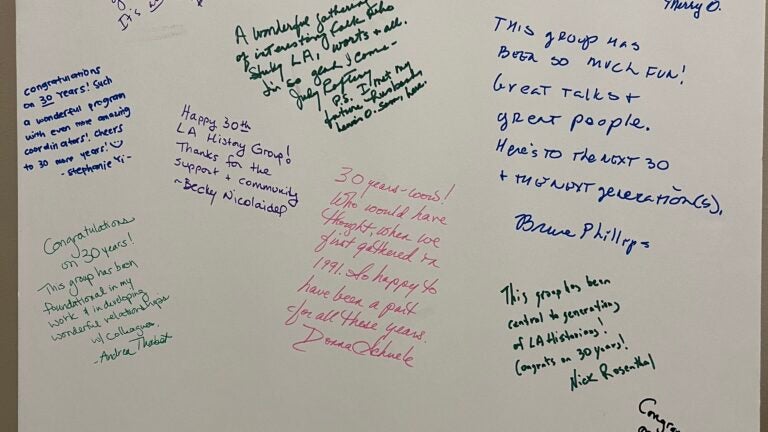 It's
Merry D.
A wonderful gathering
of interesting folk who
study LA, warts + all.
I'm so glad I came -
July
P.S. I met my
future husband,
here.
THIS GROUP HAS
BEEN SO MUCH FUN!
Great TALKS +
great people.
Here's TO THE NEXT 30
+ THE NEXT generation(s).
Bruce Phillips
congratulations
on 30 years! Such
a wonderful program
with even more amazing
coordinators! Cheers
to 30 more years!
- Stephanie Yi -
Happy 30th
LA History Group!
Thanks for the
support + community
~Becky Nicolaides
30 years - wow!
Who would have
thought, when we
first gathered in
1991. So happy to
have been a part
for all these years.
Donna Schuele
Congratulations
on 30 years!
This group has been
foundational in my
work + in developing
wonderful relationships
w/ colleagues.
-Andrea Thabet
This group has been
central to generations
of LA Historians!
Congrats on 30 years!
Nick Rosenthal
Congra